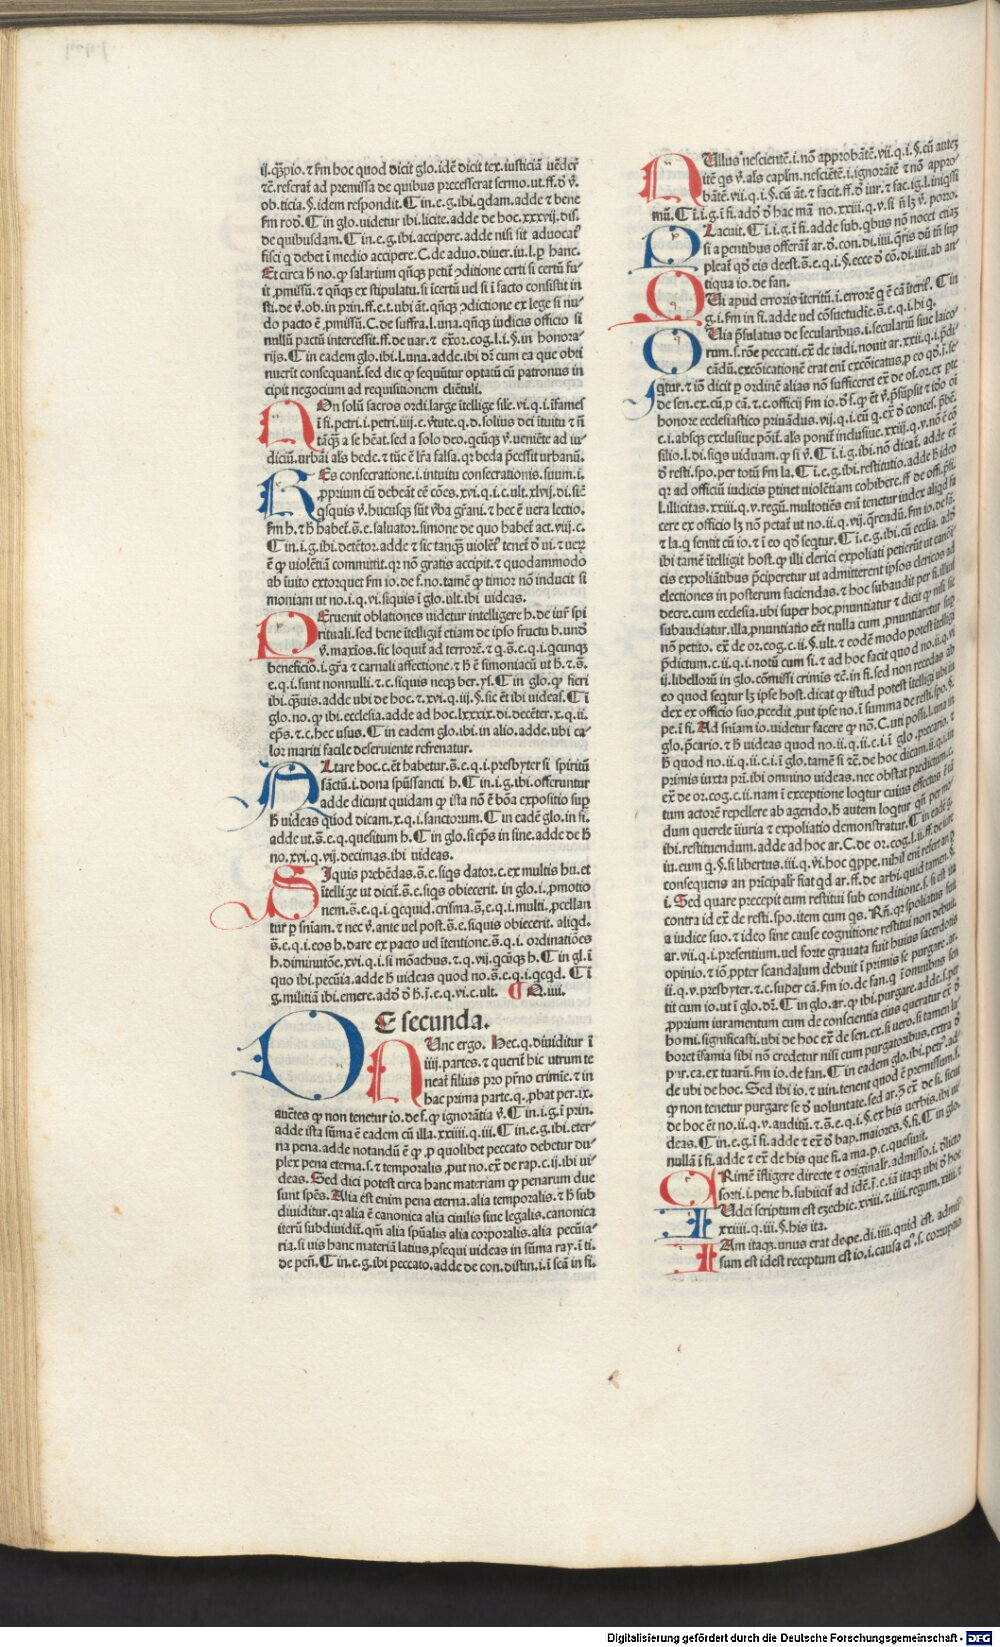 ij. q̄ppio. ⁊ fm hoc quod dicit glo. idē dicit tex. iusticiā uēder̄
⁊ē. referat̄ ad premissa de quibus precesserat sermo. ut. ff. ð ṽ.
ob. ticia. §. idem respondit. ¶ in. e. g. ibi. qdam. adde ⁊ bene
fm rod̄. ¶ in glo. uidetur ibi. licite. adde de hoc. xxxvij. dis.
de quibusdam. ¶ in. e. g. ibi. accipere. adde nisi sit aduocat̄
fisci q debet i medio accipere. C. de aduo. diuer. iu. l. p hanc.
Et circa h̄ no. ꝙ salarium qn̄qꝫ petit̄ ↄditione certi si certū fu-
it ꝓmissū. ⁊ qn̄qꝫ ex stipulatu. si icertū uel si i facto consistit in
sti. de ṽ. ob. in prin. ff. e. t. ubi āt. qn̄qꝫ ↄdictione ex lege si nu-
do pacto ē ꝓmissū. C. de suffra. l. una. qn̄qꝫ iudicis officio si
nullū pactū intercessit. ff. de uar. ⁊ exor. cog. l. i. §. in honora
rijs. ¶ in eadem glo. ibi. l. una. adde. ibi dn̄ cum ea que obti
nuerit consequant̄. sed dic ꝙ sequūtur optatū cū patronus in
cipit negocium ad requisitionem cliētuli.
NOn solū sacros ordi. large ītellige sile. vi. q. i. īfames
ī fi. petri. i. petri. iiij. c. ṽtute. q. ð. solius dei ītuitu ⁊ n̄
tāqꝫ a se hēat. sed a solo deo. qcūqꝫ ṽ. ueniēte ad iu-
diciū. urbāi als bede. ⁊ tūc ē lr̄a falsa. qꝛ beda ꝑcessit urbanū.
REs consecratione. i. intuitu consecrationis. suum. i.
ꝓprium cū debeāt eē cōces. xvi. q. i. c. ult. xlvij. di. sic̄
qsquis ṽ. hucusqꝫ sūt ṽba gr̄ani. ⁊ hec ē uera lectio.
fm h. ⁊ h̄ habet̄. s̄. e. saluator. simone de quo habet̄ act. viij. c.
¶ in. i. g. ibi. detētor. adde ⁊ sic tanqꝫ uiolēt̄ tenet̄ ð ui. ⁊ ueꝝ
ē ꝙ uiolētiā committit. qꝛ nō gratis accipit. ⁊ quodammodo
ab īuito extorquet fm io. de f. no. tamē ꝙ timor nō inducit si
moniam ut no. i. q. vi. siquis ī glo. ult. ibi uideas.
PEruenit oblationes uidetur intelligere h. de iur̄ spi
rituali. sed bene ītelligit̄ etiam de ipso fructu h. und̄
ṽ. maxīos. sic loquit̄ ad terrorē. ⁊ q. s̄. e. q. i. qcunqꝫ
beneficio. i. gr̄a ⁊ carnali affectione. ⁊ h̄ ē simoniacū ut h̄. ⁊. s̄.
e. q. i. sunt nonnulli. ⁊. c. siquis neqꝫ ber. ys̄. ¶ in glo. ꝙ fieri
ibi. qm̄uis. adde ubi de hoc. ⁊. xvi. q. iij. §. sic ēt ibi uideas. ¶ ī
glo. no. ꝙ ibi. ecclesia. adde ad hoc. lxxxix. di. decēter. x. q. ii.
ep̄s. ⁊. c. hec usus. ¶ in eadem glo. ibi. in alio. adde. ubi ca-
lor mariti facile deseruiente refrenatur.
ALtare hoc. c. ēt habetur. s̄. e. q. i. presbyter si spiritū
sāctū. i. dona sp̄ussancti h. ¶ in. i. g. ibi. offeruntur
adde dicunt quidam ꝙ ista nō ē bōa expositio sup̄
h̄ uideas quod dicam. x. q. i. sanctorum. ¶ in eadē glo. in fi.
adde ut. s̄. e. q. quesitum h. ¶ in glo. si ep̄s in sine. adde de h̄
no. xvi. q. vij. decimas. ibi uideas.
SIquis prebēdas. s̄. e. siqs dator. c. ex multis hu. et
ītellige ut dicit̄. s̄. e. siqs obiecerit. in glo. i. ꝓmotio
nem. s̄. e. q. i. qcquid. crisma. s̄. e. q. i. multi. ꝓcellan
tur p sniam. ⁊ nec ṽ. ante uel post. s̄. e. siquis obiecerit. aliqd.
s̄. e. q. i. eos h. dare ex pacto uel ītentione. s̄. q. i. ordinatiōes
h. diminutōe. xvi. q. i. si mōachus. ⁊. q. vij. qcūqꝫ h. ¶ in gl. i
quo ibi. pecūia. adde h̄ uideas quod no. s̄. e. q. i. qcqd. ¶ ī
g. militiā ibi. emere. adð ð h̄. j. e. q. vi. c. ult. ¶ Q. iiii.
DE secunda.
NUnc ergo. Hec. q. diuiditur ī
iiij. partes. ⁊ querit̄ hic utrum te
neat̄ filius pro pr̄no crimīe. ⁊ in
hac prima parte. q. ꝓbat per. ix.
autētes ꝙ non tenetur io. de f. ꝙ ignorātia ṽ. ¶ in. i. g. ī prin.
adde ista sūma ē eadem cū illa. xxiiii. q. iii. ¶ in. e. g. ibi. eter-
na pena. adde notandū ē ꝙ ꝓ quolibet peccato debetur du-
plex pena eterna. s. ⁊ temporalis ꝓut no. exͭ de rap. c. ij. ibi ui-
deas. Sed dici potest circa hanc materiam ꝙ penarum due
sunt spēs. Alia est enim pena eterna. alia temporalis. ⁊ h̄ sub
diuiditur. qꝛ alia ē canonica alia ciuilis siue legalis. canonica
iterū subdiuidit̄. qm̄ alia spūalis alia corporalis. alia pecūia-
ria. si uis hanc materiā latius ꝓsequi uideas in sūma ray. ī ti.
de pen̄. ¶ in. e. g. ibi peccato. adde de con. distin. i. ī scā in fi.
NUllus nescientē. i. nō approbātē. vii. q. i. §. cū autez
itē qs ṽ. als capl̄m. nesciētē. i. ignorātē ⁊ nō appro-
batē. vii. q. i. §. cū āt. ⁊ facit. ff. ð iur. ⁊ fac. ig. l. iniqssi
mū. ¶ ī. i. g. ī fi. adð ð hac mā no. xxiii. q. v. si n̄ lꝫ ṽ. porro.
PLacuit. ¶ ī. i. g. ī fi. adde sub. qbus nō nocet etiaꝫ
si a pentibus offerāt̄ ar. ð. con. di. iiii. qris dū tn̄ sup
pleat̄ qð eis deest. s̄. e. q. i. §. ecce ð cō. di. iiii. ab an-
tiqua io. de fan.
QUi apud erroris ūeritū. i. errorē q ē cā īterit̄. ¶ in
g. i. fm in fi. adde uel cōsuetudīe. s̄. e. q. i. hi q.
QUia p̄sulatus de secularibus. i. seculariū siue laico-
rum. s. rōe peccati. exͭ de iudi. nouit ar. xxii. q. i. p̄di-
cādū. excōicationē erat eni excōicatus. p eo qð. j. se-
qtur. ⁊ iō dicit p ordinē alias nō sufficeret exͭ de of. or. ex pte
de sen. ex. cū. p cā. ⁊. c. officij fm io. ð f. ꝙ ēt ṽ. p̄supsit ⁊ iō o ī
honore ecclesiastico priuādus. vij. q. i. cū q. exͭ ð conces. p̄bē.
c. i. absqꝫ exclusiue pōit̄. als ponit̄ inclusiue. xxiij. q. v. nō ē cō
silio. l. di. siqs uiduam. ꝙ si ṽ. ¶ ī. i. g. ibi. nō dicat̄. adde exͭ
ð resti. spo. per totū fm la. ¶ ī. e. g. ibi. restitutio. adde h̄ ideo
qꝛ ad officiū iudicis ꝑtinet uiolētiam cohibere. ff. de offi. p̄si.
l. illicitas. xxiii. q. v. regū. multotiēs eni tenetur iudex aliqd fa
cere ex officio lꝫ nō petat̄ ut no. ii. q. vij. qrendū. fm io. de fā.
⁊ la. q sentit cū io. ⁊ ī eo qð seqtur. ¶ ī. e. g. ibi. cū ecclia. adð
ibi tamē ītelligit host. ꝙ illi clerici expoliati petierūt ut canōi
cis expoliātibus p̄ciperetur ut admitterent ipsos clericos ad
electiones in posterum faciendas. ⁊ hoc subaudit per fi. illius
decre. cum ecclesia. ubi super hoc ꝓnuntiatur ⁊ dicit ꝙ nisi sic
subaudiatur. illa ꝓnuntiatio eēt nulla cum ꝓnuntiaretur sup
nō petito. exͭ de or. cog. c. ii. §. ult. ⁊ eodē modo potest ītelligi
p̄dictum. c. ii. q. i. notū cum fi. ⁊ ad hoc facit quod no. ii. q. vi
ij. libellorū in glo. cōmissi crimīs ⁊ē. in fi. sed non recedas ab
eo quod seqtur lꝫ ipse host. dicat ꝙ istud potest ītelligi ubi iu
dex ex officio suo ꝓcedit ꝓut ipse no. ī summa de resti. spo. §.
pe. ī fi. Ad sniam io. uidetur facere ꝙ nō. C. uti possi. l. una in
glo. p̄cario. ⁊ h̄ uideas quod no. ii. q. ii. c. i. ī glo. precario. ⁊
h̄ quod no. ii. q. ii. c. i. ī glo. tamē si ⁊ē. de hoc dicam. ii. q. i. in
primis iuxta pri. ibi omnino uideas. nec obstat predictum. c.
exͭ de or. cog. c. ii. nam ī exceptione loqtur cuius effectus ē tā
tum actorē repellere ab agendo. h̄ autem loqtur qn̄ per mo
dum querele īiuria ⁊ expoliatio demonstratur. ¶ in eadē g.
ibi. restituendum. adde ad hoc ar. C. de or. cog. l. ii. ff. de iure
iu. eum q. §. si libertus. iii. q. ṽi. hoc qppe. nihil eni refert an p
consequens an pr̄icipalr̄ fiat qd ar. ff. de arbi. quid tamen. §.
i. Sed quare precepit eum restitui sub conditione. s. si est ita
contra id exͭ de resti. spo. item cum qs. Rn̄. qꝛ spoliatus fuit
a iudice suo. ⁊ ideo sine cause cognitione restitui non debuit.
ar. vii. q. i. presentium. uel forte grauata fuit huius sacerdotis
opinio. ⁊ iō ꝓpter scandalum debuit ī primis se purgare. ar.
ii. q. v. presbyter. ⁊. c. super cā. fm io. de fan. q ī omnibus sen
tit cum io. ut ī glo. ðr̄. ¶ in glo. ar. ꝙ ibi. purgare. adde. s. per
ꝓprium iuramentum cum de conscientia eius queratur exͭ ð
homi. significasti. ubi de hoc exͭ de sen. ex. si uero. si tamen la
boret īfamia sibi nō credetur nisi cum purgatoribus. extra ð
pur. ca. ex tuarū. fm io. de fan. ¶ in eadem glo. ibi. petr̄. ad-
de ubi de hoc. Sed ibi io. ⁊ uin. tenent quod ē premissum. s.
ꝙ non tenetur purgare se ð voluntate. sed ar. ꝫ exͭ de fi. sicut
de hoc ēt no. ii. q. v. auditū. ⁊. s̄. e. q. i. §. ex his uerbis. ibi ui
deas. ¶ in. e. g. ī fi. adde ⁊ exͭ ð bap. maiores. §. fi. ¶ in glo.
nullā ī fi. adde ⁊ exͭ de his que fi. a ma. p. c. quesiuit.
CRimē īfligere directe ⁊ originalr̄. admisso. i. ð̄licto
forti. i. pene h. subiicit̄ ad idē. j. e. iā itaqꝫ ubi ð hoc
IUdei scriptum est ezechie. xviii. ⁊. iiii. regum. xiiii. ⁊
xxiiii. q. iii. §. his ita.
IAm itaqꝫ. unus erat de pe. di. iiii. quid est. admis
sum est idest receptum est io. i. causa ei⁹. s. corruptio
Digitalisierung gefördert durch die Deutsche Forschungsgemeinschaft - DFG